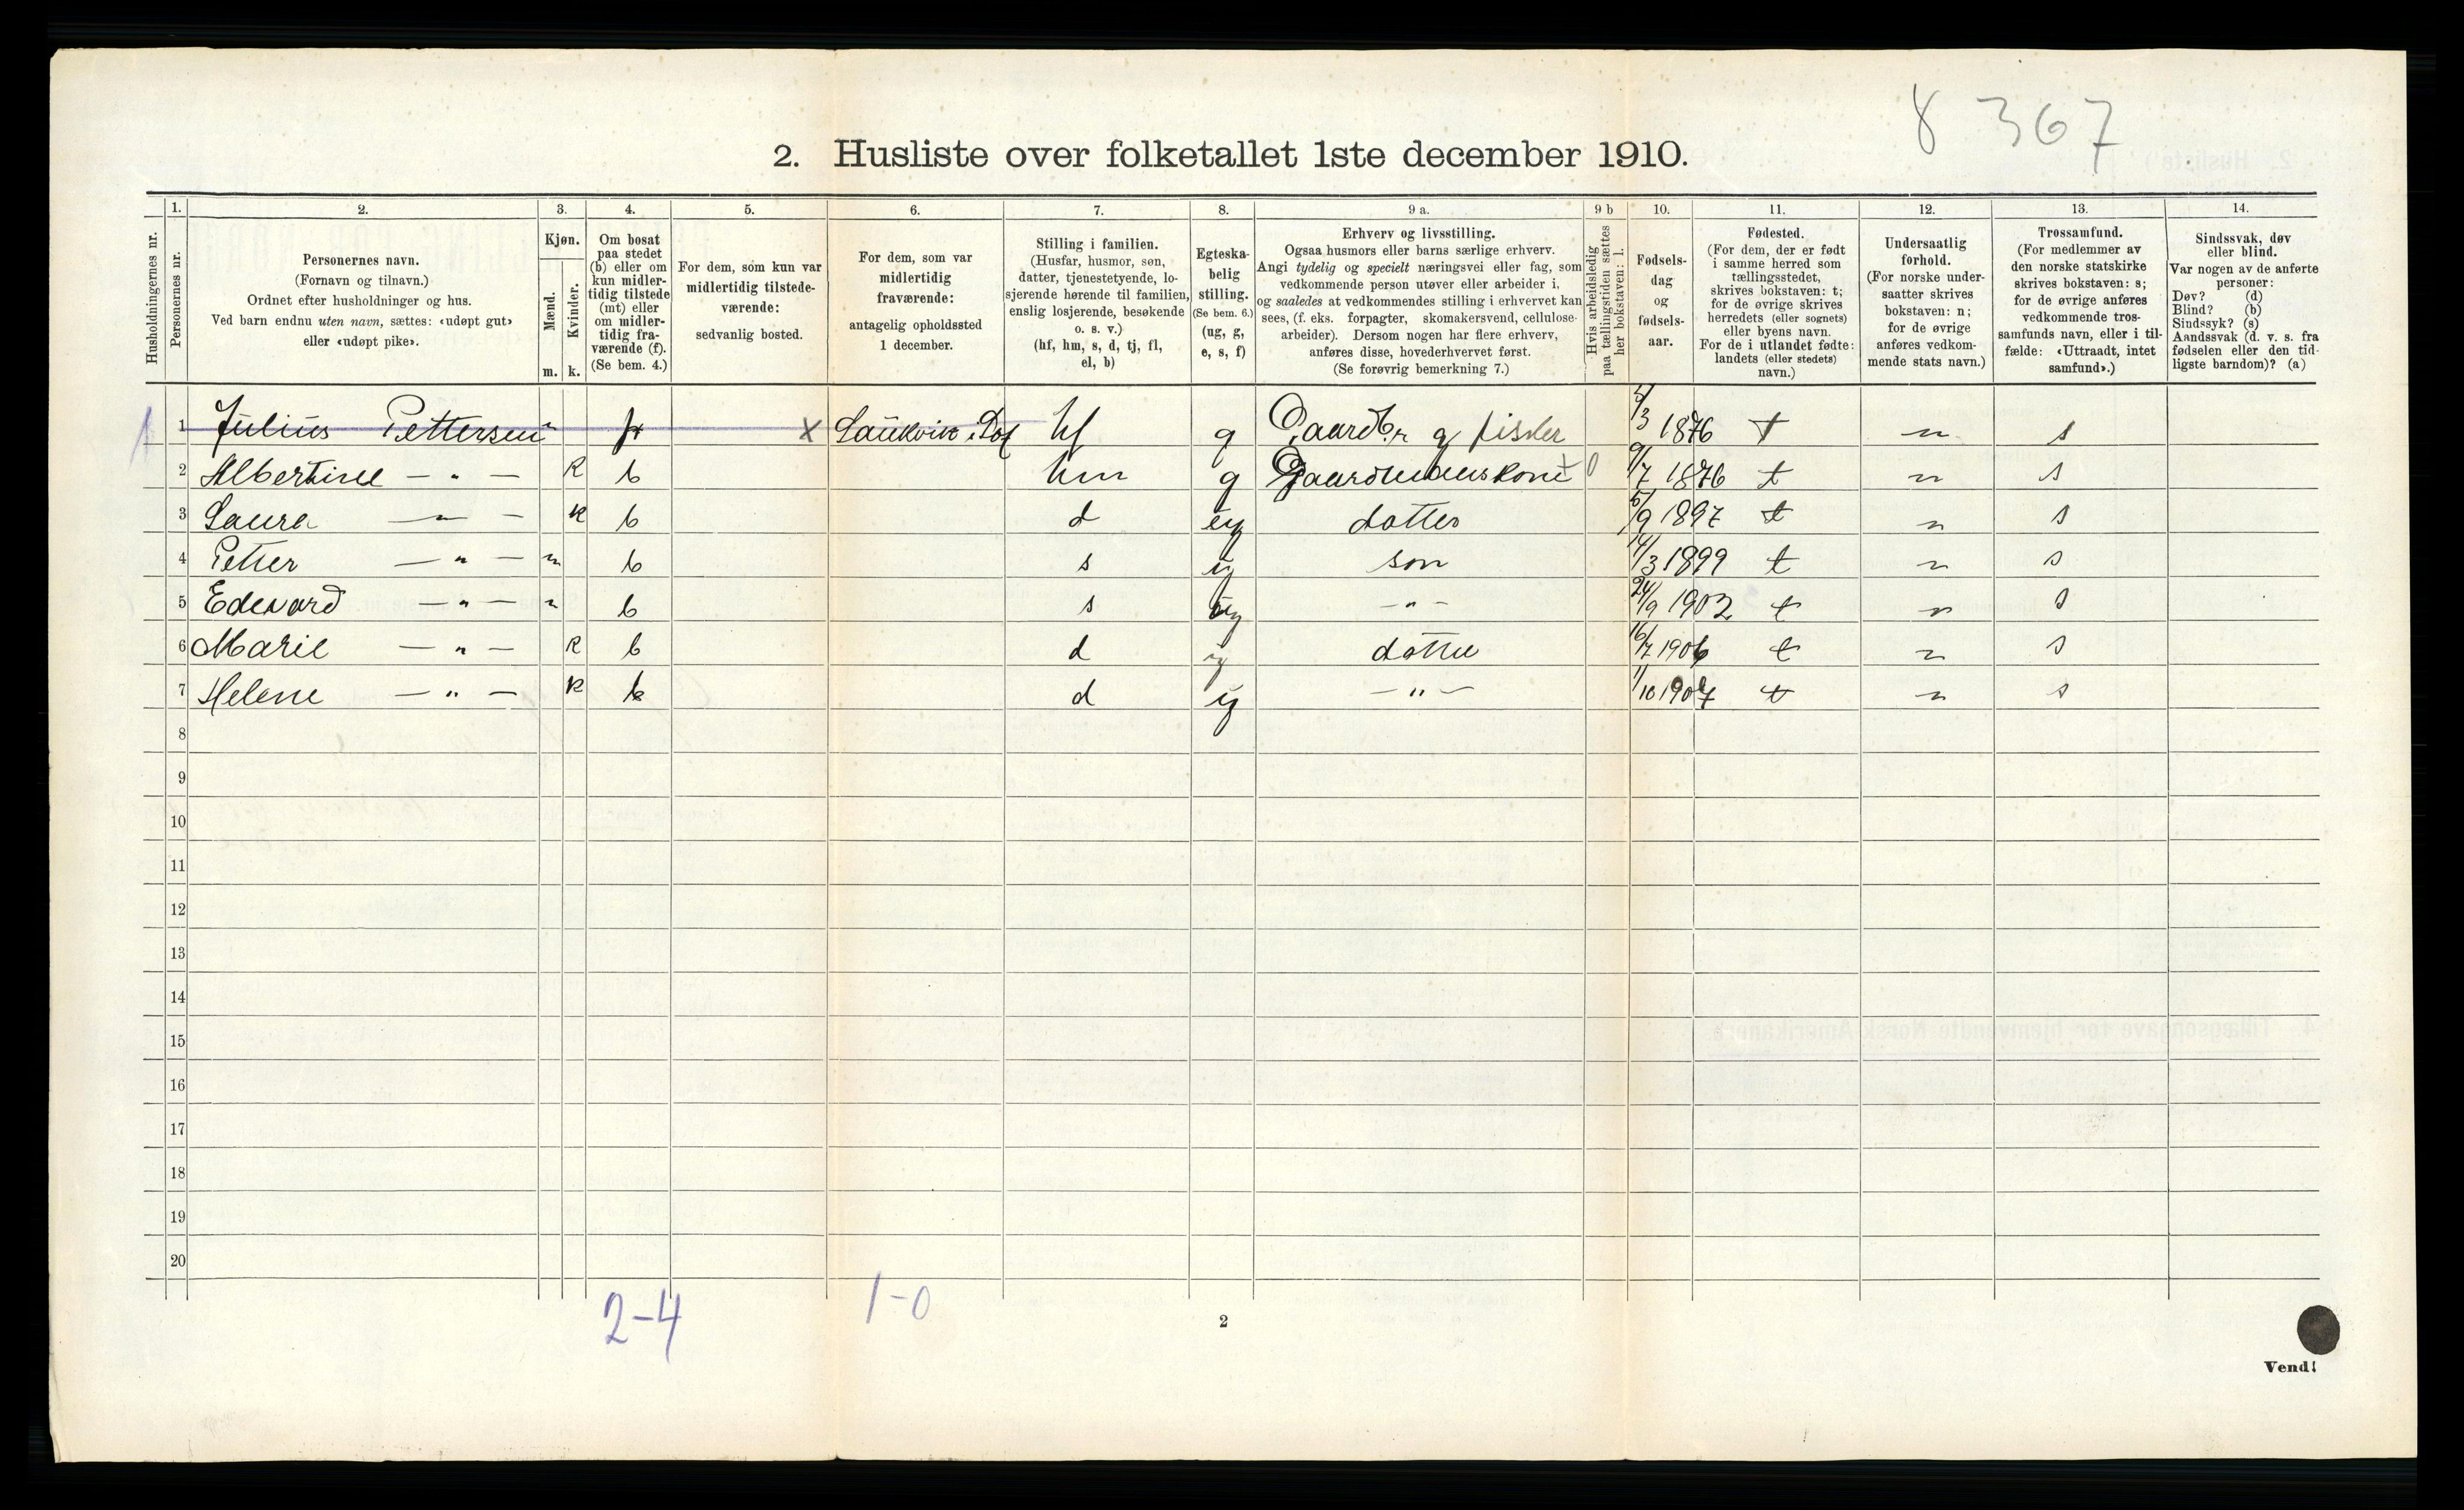 8 367
2. Husliste over folketallet 1ste december 1910.
Husholdningernes nr.
1. Personernes nr.
2. Personernes navn. (Fornavn og tilnavn.) Ordnet efter husholdninger og hus. Ved barn endnu uten navn, sættes: «udøpt gut» eller «udøpt pike».
3. Kjøn. Mænd. m. Kvinder. k.
4. Om bosat paa stedet (b) eller om kun midler-tidig tilstede (mt) eller om midler-tidig fra-værende (f). (Se bem. 4.)
5. For dem, som kun var midlertidig tilstede-værende: sedvanlig bosted.
6. For dem, som var midlertidig fraværende: antagelig opholdssted 1 december.
7. Stilling i familien. (Husfar, husmor, søn, datter, tjenestetyende, lo-sjerende hørende til familien, enslig losjerende, besøkende o. s. v.) (hf, hm, s, d, tj, fl, el, b)
8. Egteska-belig stilling. (Se bem. 6.) (ug, g, e, s, f)
9 a. Erhverv og livsstilling. Ogsaa husmors eller barns særlige erhverv. Angi tydelig og specielt næringsvei eller fag, som vedkommende person utøver eller arbeider i, og saaledes at vedkommendes stilling i erhvervet kan sees, (f. eks. forpagter, skomakersvend, cellulose-arbeider). Dersom nogen har flere erhverv, anføres disse, hovederhvervet først. (Se forøvrig bemerkning 7.)
9 b Hvis arbeidsledig paa tællingstiden sættes her bokstaven: l.
10. Fødsels-dag og fødsels-aar.
11. Fødested. (For dem, der er født i samme herred som tællingsstedet, skrives bokstaven: t; for de øvrige skrives herredets (eller sognets) eller byens navn. For de i utlandet fødte: landets (eller stedets) navn.)
12. Undersaatlig forhold. (For norske under-saatter skrives bokstaven: n; for de øvrige anføres vedkom-mende stats navn.)
13. Trossamfund. (For medlemmer av den norske statskirke skrives bokstaven: s; for de øvrige anføres vedkommende tros-samfunds navn, eller i til-fælde: «Uttraadt, intet samfund».)
14. Sindssvak, døv eller blind. Var nogen av de anførte personer: Døv? (d) Blind? (b) Sindssyk? (s) Aandssvak (d. v. s. fra fødselen eller den tid-ligste barndom)? (a)
1 1 Julius Pettersen m f x Laukvik i Dof hf g Gaardbr og fisker /3 1876 t n s
2 Albertine — " — k b hm g Gaardmanskone 9/7 1876 t n s
3 Laura — " — k b d ug datter 5/9 1897 t n s
4 Petter — " — m b s ug son 14/3 1899 t n s
5 Edevard — " — m b s ug — " — 24/9 1902 t n s
6 Marie — " — k b d ug datter 16/7 1906 t n s
7 Helene — " — k b d ug — " — 1/10 t n s
8
9
10
11
12
13
14
15
16
17
18
19
20
2-4 1-0
2
Vend!